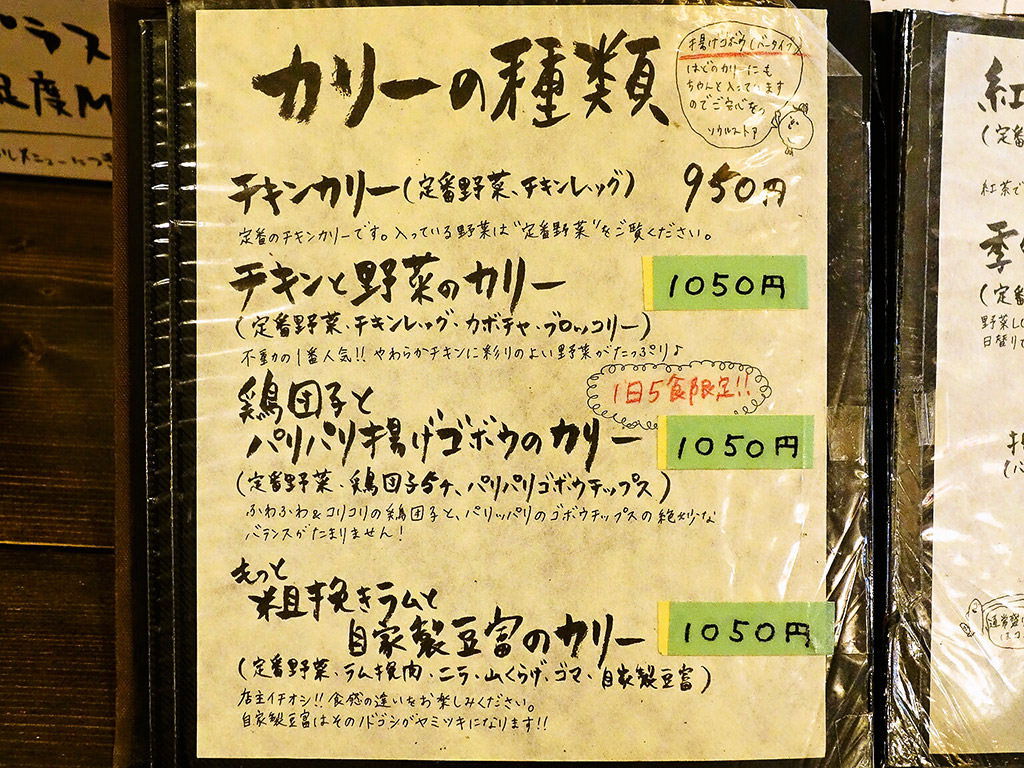 プラス
足度M
カリーの種類
揚げゴボウ(ベータイプ)
はどのカリーにも
ちゃんと入ってますので
ご安心を
ソウルストア
チキンカリー(定番野菜、チキンレッグ) 950円
定番のチキンカリーです。入っている野菜は"定番野菜"をご覧ください。
チキンと野菜のカリー 1050円
(定番野菜・チキンレッグ・カボチャ・ブロッコリー)
不動の1番人気!! やわらかチキンに彩りのよい野菜がたっぷり♪
1日5食限定!!
鶏団子と
パリパリ揚げゴボウのカリー 1050円
(定番野菜・鶏団子5ヶ、パリパリゴボウチップス)
ふわふわ&コリコリの鶏団子と、パリッパリのゴボウチップスの絶妙な
バランスがたまりません!
もっと
粗挽きラムと
自家製豆富のカリー 1050円
(定番野菜、ラム挽肉・ニラ・山くらげ、ゴマ・自家製豆富)
店主イチオシ!! 食感の違いをお楽しみください。
自家製豆富はそのノドゴシがヤミツキになります!!
紅
(定番
紅茶で
季
(定番
日替りで